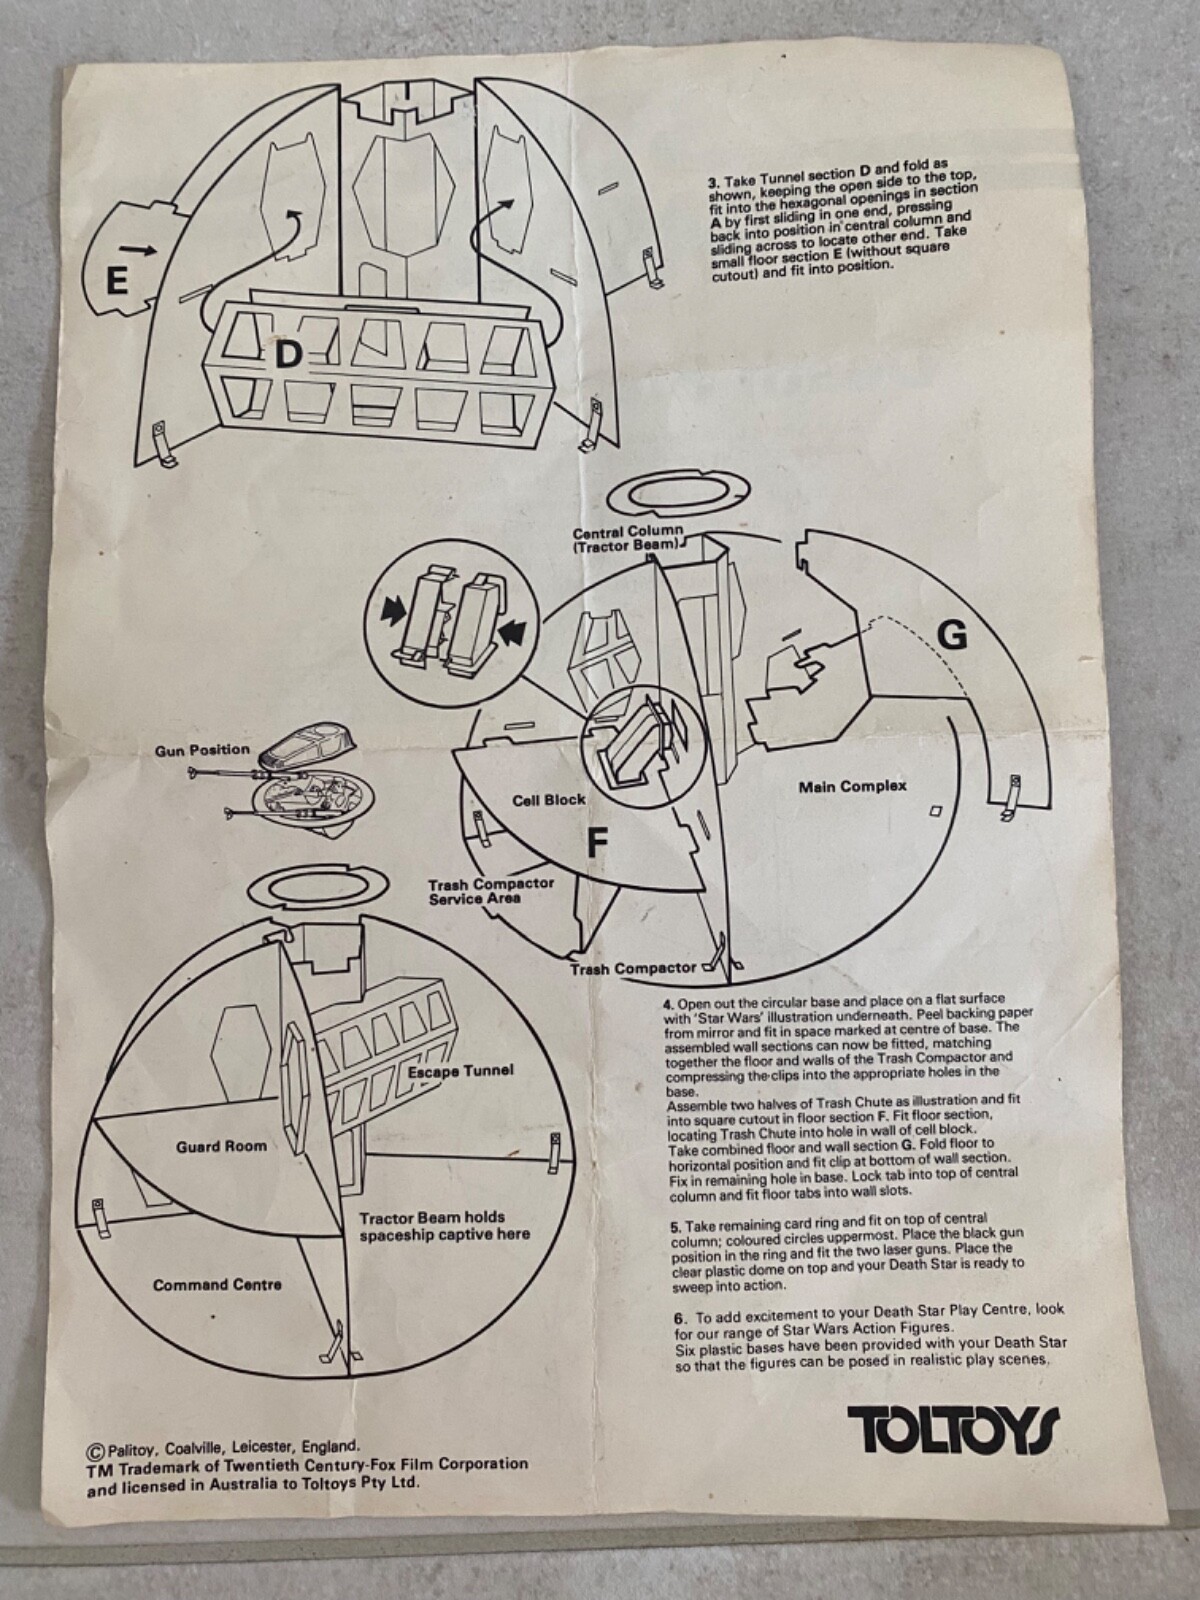 3. Take Tunnel section D and fold as
shown, keeping the open side to the top,
fit into the hexagonal openings in section
A by first sliding in one end, pressing
back into position in central column and
sliding across to locate other end. Take
small floor section E (without square
cutout) and fit into position.
E
D
Central Column
(Tractor Beam)
G
Gun Position
Cell Block
Main Complex
F
Trash Compactor
Service Area
Trash Compactor
Escape Tunnel
Guard Room
Tractor Beam holds
spaceship captive here
Command Centre
4. Open out the circular base and place on a flat surface
with 'Star Wars' illustration underneath. Peel backing paper
from mirror and fit in space marked at centre of base. The
assembled wall sections can now be fitted, matching
together the floor and walls of the Trash Compactor and
compressing the clips into the appropriate holes in the
base.
Assemble two halves of Trash Chute as illustration and fit
into square cutout in floor section F. Fit floor section,
locating Trash Chute into hole in wall of cell block.
Take combined floor and wall section G. Fold floor to
horizontal position and fit clip at bottom of wall section.
Fix in remaining hole in base. Lock tab into top of central
column and fit floor tabs into wall slots.
5. Take remaining card ring and fit on top of central
column; coloured circles uppermost. Place the black gun
position in the ring and fit the two laser guns. Place the
clear plastic dome on top and your Death Star is ready to
sweep into action.
6. To add excitement to your Death Star Play Centre, look
for our range of Star Wars Action Figures.
Six plastic bases have been provided with your Death Star
so that the figures can be posed in realistic play scenes.
TOLTOYS
© Palitoy, Coalville, Leicester, England.
TM Trademark of Twentieth Century-Fox Film Corporation
and licensed in Australia to Toltoys Pty Ltd.